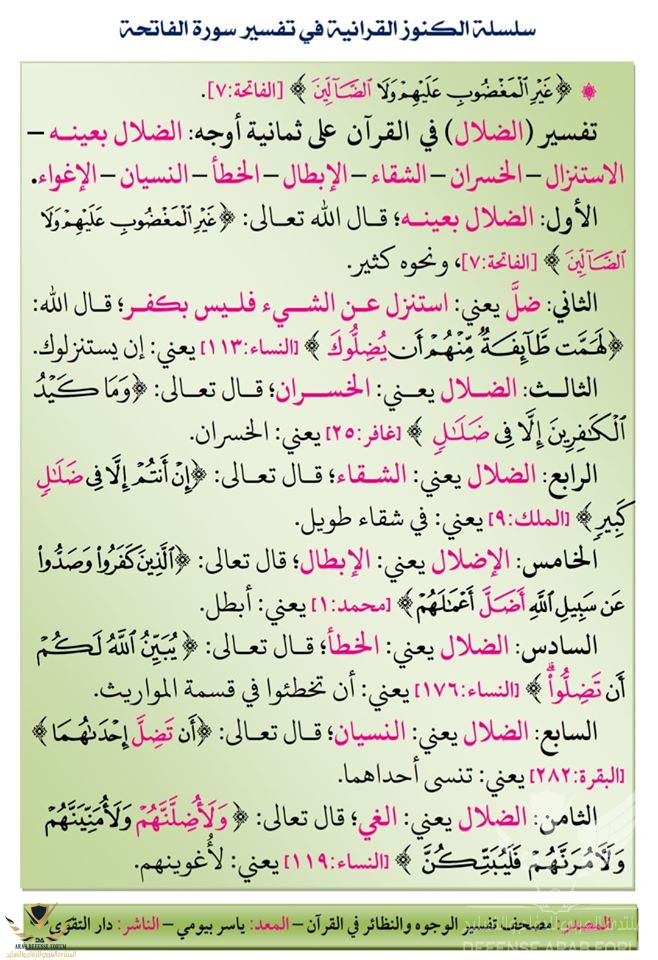 سلسلة الكنوز القرانية في تفسير سورة الفاتحة
﴿غَيْرِ الْمَغْضُوبِ عَلَيْهِمْ وَلَا الضَّآلِّينَ﴾ [الفاتحة:٧].
تفسير (الضلال) في القرآن على ثمانية أوجه: الضلال بعينـه –
الاستنزال – الخسران – الشقاء – الإبطال – الخطأ – النسيان – الإغواء.
الأول: الضلال بعينـه؛ قـال الله تعـالى: ﴿غَيْرِ الْمَغْضُوبِ عَلَيْهِمْ وَلَا
الضَّآلِّينَ﴾ [الفاتحة:٧]، ونحوه كثير.
الثاني: ضلَّ يعني: استنزل عـن الشـيء فلـيس بكفـر؛ قـال الله:
﴿لَهَمَّت طَّآئِفَةٌ مِّنْهُمْ أَن يُضِلُّوكَ﴾ [النساء:١١٣] يعني: إن يستنزلوك.
الثالـث: الضـلال يعنـي: الخسـران؛ قـال تعـالى: ﴿وَمَا كَيْدُ
الْكَٰفِرِينَ إِلَّا فِى ضَلَٰلٍ﴾ [غافر:٢٥] يعني: الخسران.
الرابع: الضلال يعني: الشـقاء؛ قـال تعـالى: ﴿إِنْ أَنتُمْ إِلَّا فِى ضَلَٰلٍ
كَبِيرٍ﴾ [الملك:٩] يعني: في شقاء طويل.
الخامس: الإضلال يعني: الإبطال؛ قال تعالى: ﴿الَّذِينَ كَفَرُوا۟ وَصَدُّوا۟
عَن سَبِيلِ اللَّهِ أَضَلَّ أَعْمَٰلَهُمْ﴾ [محمد:١] يعني: أبطل.
السادس: الضلال يعني: الخطأ؛ قـال تعـالى: ﴿يُبَيِّنُ اللَّهُ لَكُمْ
أَن تَضِلُّوا۟ۗ﴾ [النساء:١٧٦] يعني: أن تخطئوا في قسمة المواريث.
السابع: الضلال يعني: النسيان؛ قـال تعـالى: ﴿أَن تَضِلَّ إِحْدَىٰهُمَا﴾
[البقرة:٢٨٢] يعني: تنسى أحداهما.
الثامن: الضلال يعني: الغي؛ قال تعالى: ﴿وَلَأُضِلَّنَّهُمْ وَلَأُمَنِّيَنَّهُمْ
وَلَآمُرَنَّهُمْ فَلَيُبَتِّكُنَّ﴾ [النساء:١١٩] يعني: لأُغوينهم.
المصدر: مصحف تفسير الوجوه والنظائر في القرآن – المعد: ياسر بيومي – الناشر: دار التقوى
DA
ARAB DEFENSE FORUM
المنتدى العربي للدفاع والتسليح
DEFENSE ARAB FORUM